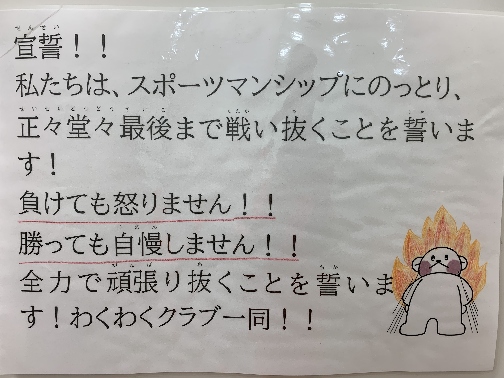 宣誓！！
私たちは、スポーツマンシップにのっとり、
正々堂々最後まで戦い抜くことを誓いま
す！
負けても怒りません！！
勝っても自慢しません！！
全力で頑張り抜くことを誓いま
す！わくわくクラブ一同！！